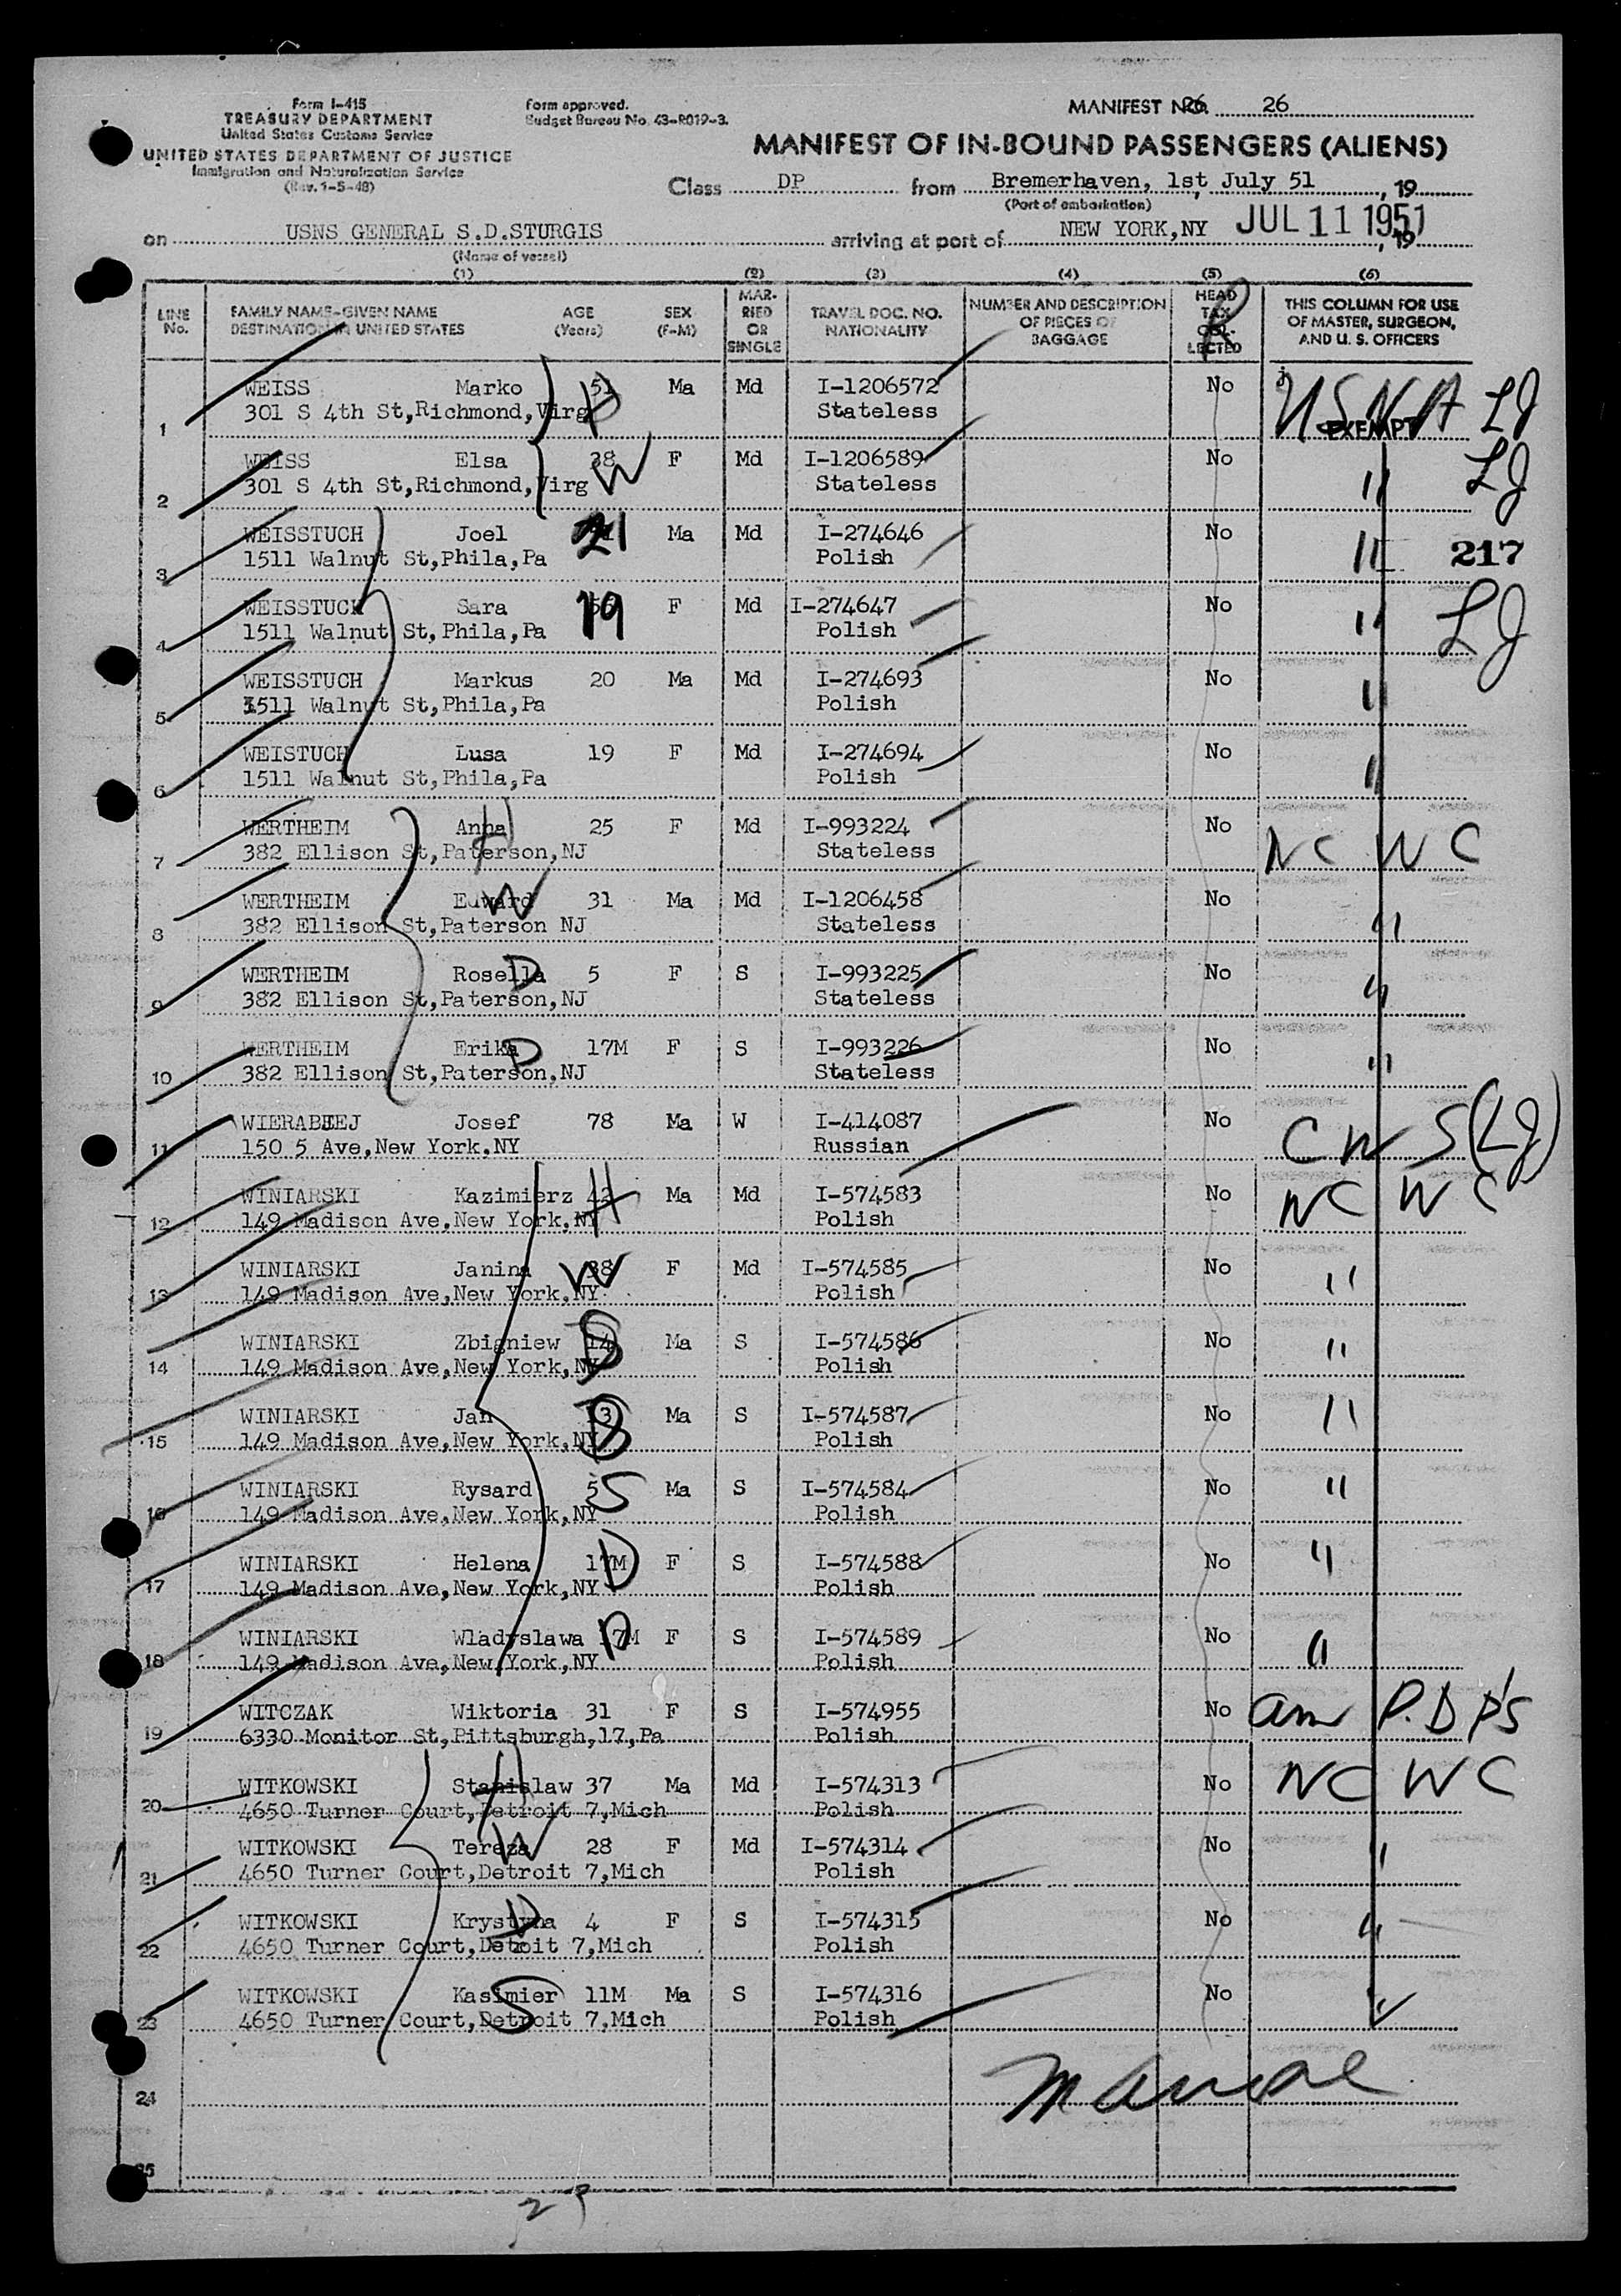 Form I-415
TREASURY DEPARTMENT
United States Customs Service
UNITED STATES DEPARTMENT OF JUSTICE
Immigration and Naturalization Service
(Rev. 1-5-48)
Form approved.
Budget Bureau No. 43-R019-3.
MANIFEST NO. 26
MANIFEST OF IN-BOUND PASSENGERS (ALIENS)
Class DP from Bremerhaven, 1st, July 51, 19
(Port of embarkation)
on USNS GENERAL S.D.STURGIS arriving at port of NEW YORK,NY JUL 11 1951, 19
(Name of vessel)
(1) (2) (3) (4) (5) (6)
LINE No. FAMILY NAME-GIVEN NAME DESTINATION IN UNITED STATES AGE (Years) SEX (F-M) MARRIED OR SINGLE TRAVEL DOC. NO. NATIONALITY NUMBER AND DESCRIPTION OF PIECES OF BAGGAGE HEAD TAX COLLECTED THIS COLUMN FOR USE OF MASTER, SURGEON, AND U. S. OFFICERS
WEISS Marko 51 Ma Md I-1206572 No USNA LJ
1 301 S 4th St,Richmond,Virg H Stateless EXEMPT
WEISS Elsa 38 W F Md I-1206589 No LJ
2 301 S 4th St,Richmond,Virg Stateless "
WEISSTUCH Joel 21 Ma Md I-274646 No
3 1511 Walnut St,Phila,Pa Polish " 217
WEISSTUCH Sara 19 F Md I-274647 No
4 1511 Walnut St,Phila,Pa Polish " LJ
WEISSTUCH Markus 20 Ma Md I-274693 No
5 1511 Walnut St,Phila,Pa Polish "
WEISTUCH Lusa 19 F Md I-274694 No
6 1511 Walnut St,Phila,Pa Polish "
WERTHEIM Anna H 25 F Md I-993224 No
7 382 Ellison St,Paterson,NJ Stateless NC WC
WERTHEIM Edward W 31 Ma Md I-1206458 No
8 382 Ellison St,Paterson NJ Stateless "
WERTHEIM Rosella D 5 F S I-993225 No
9 382 Ellison St,Paterson,NJ Stateless "
WERTHEIM Erika D 17M F S I-993226 No
10 382 Ellison St,Paterson,NJ Stateless "
WIERABEJ Josef 78 Ma W I-414087 No
11 150 5 Ave,New York.NY Russian CWS(LJ)
WINIARSKI Kazimierz 42 H Ma Md I-574583 No NC WC
12 149 Madison Ave,New York,NY Polish
WINIARSKI Janina 38 W F Md I-574585 No
13 149 Madison Ave,New York,NY Polish "
WINIARSKI Zbigniew 14 Ma S I-574586 No
14 149 Madison Ave,New York,NY Polish "
WINIARSKI Jan 13 Ma S I-574587 No "
15 149 Madison Ave,New York,NY Polish
WINIARSKI Rysard 5 S Ma S I-574584 No "
16 149 Madison Ave,New York,NY Polish
WINIARSKI Helena 17M D F S I-574588 No "
17 149 Madison Ave,New York,NY Polish
WINIARSKI Wladyslawa 17M D F S I-574589 No "
18 149 Madison Ave,New York,NY Polish
WITCZAK Wiktoria 31 F S I-574955 No am P.DP's
19 6330 Monitor St,Pittsburgh,17,Pa Polish
WITKOWSKI Stanislaw H 37 Ma Md I-574313 No NC WC
20 4650 Turner Court,Detroit 7,Mich Polish
WITKOWSKI Tereza W 28 F Md I-574314 No "
21 4650 Turner Court,Detroit 7,Mich Polish
WITKOWSKI Krystyna D 4 F S I-574315 No "
22 4650 Turner Court,Detroit 7,Mich Polish
WITKOWSKI Kasimier S 11M Ma S I-574316 No "
23 4650 Turner Court,Detroit 7,Mich Polish
24
25